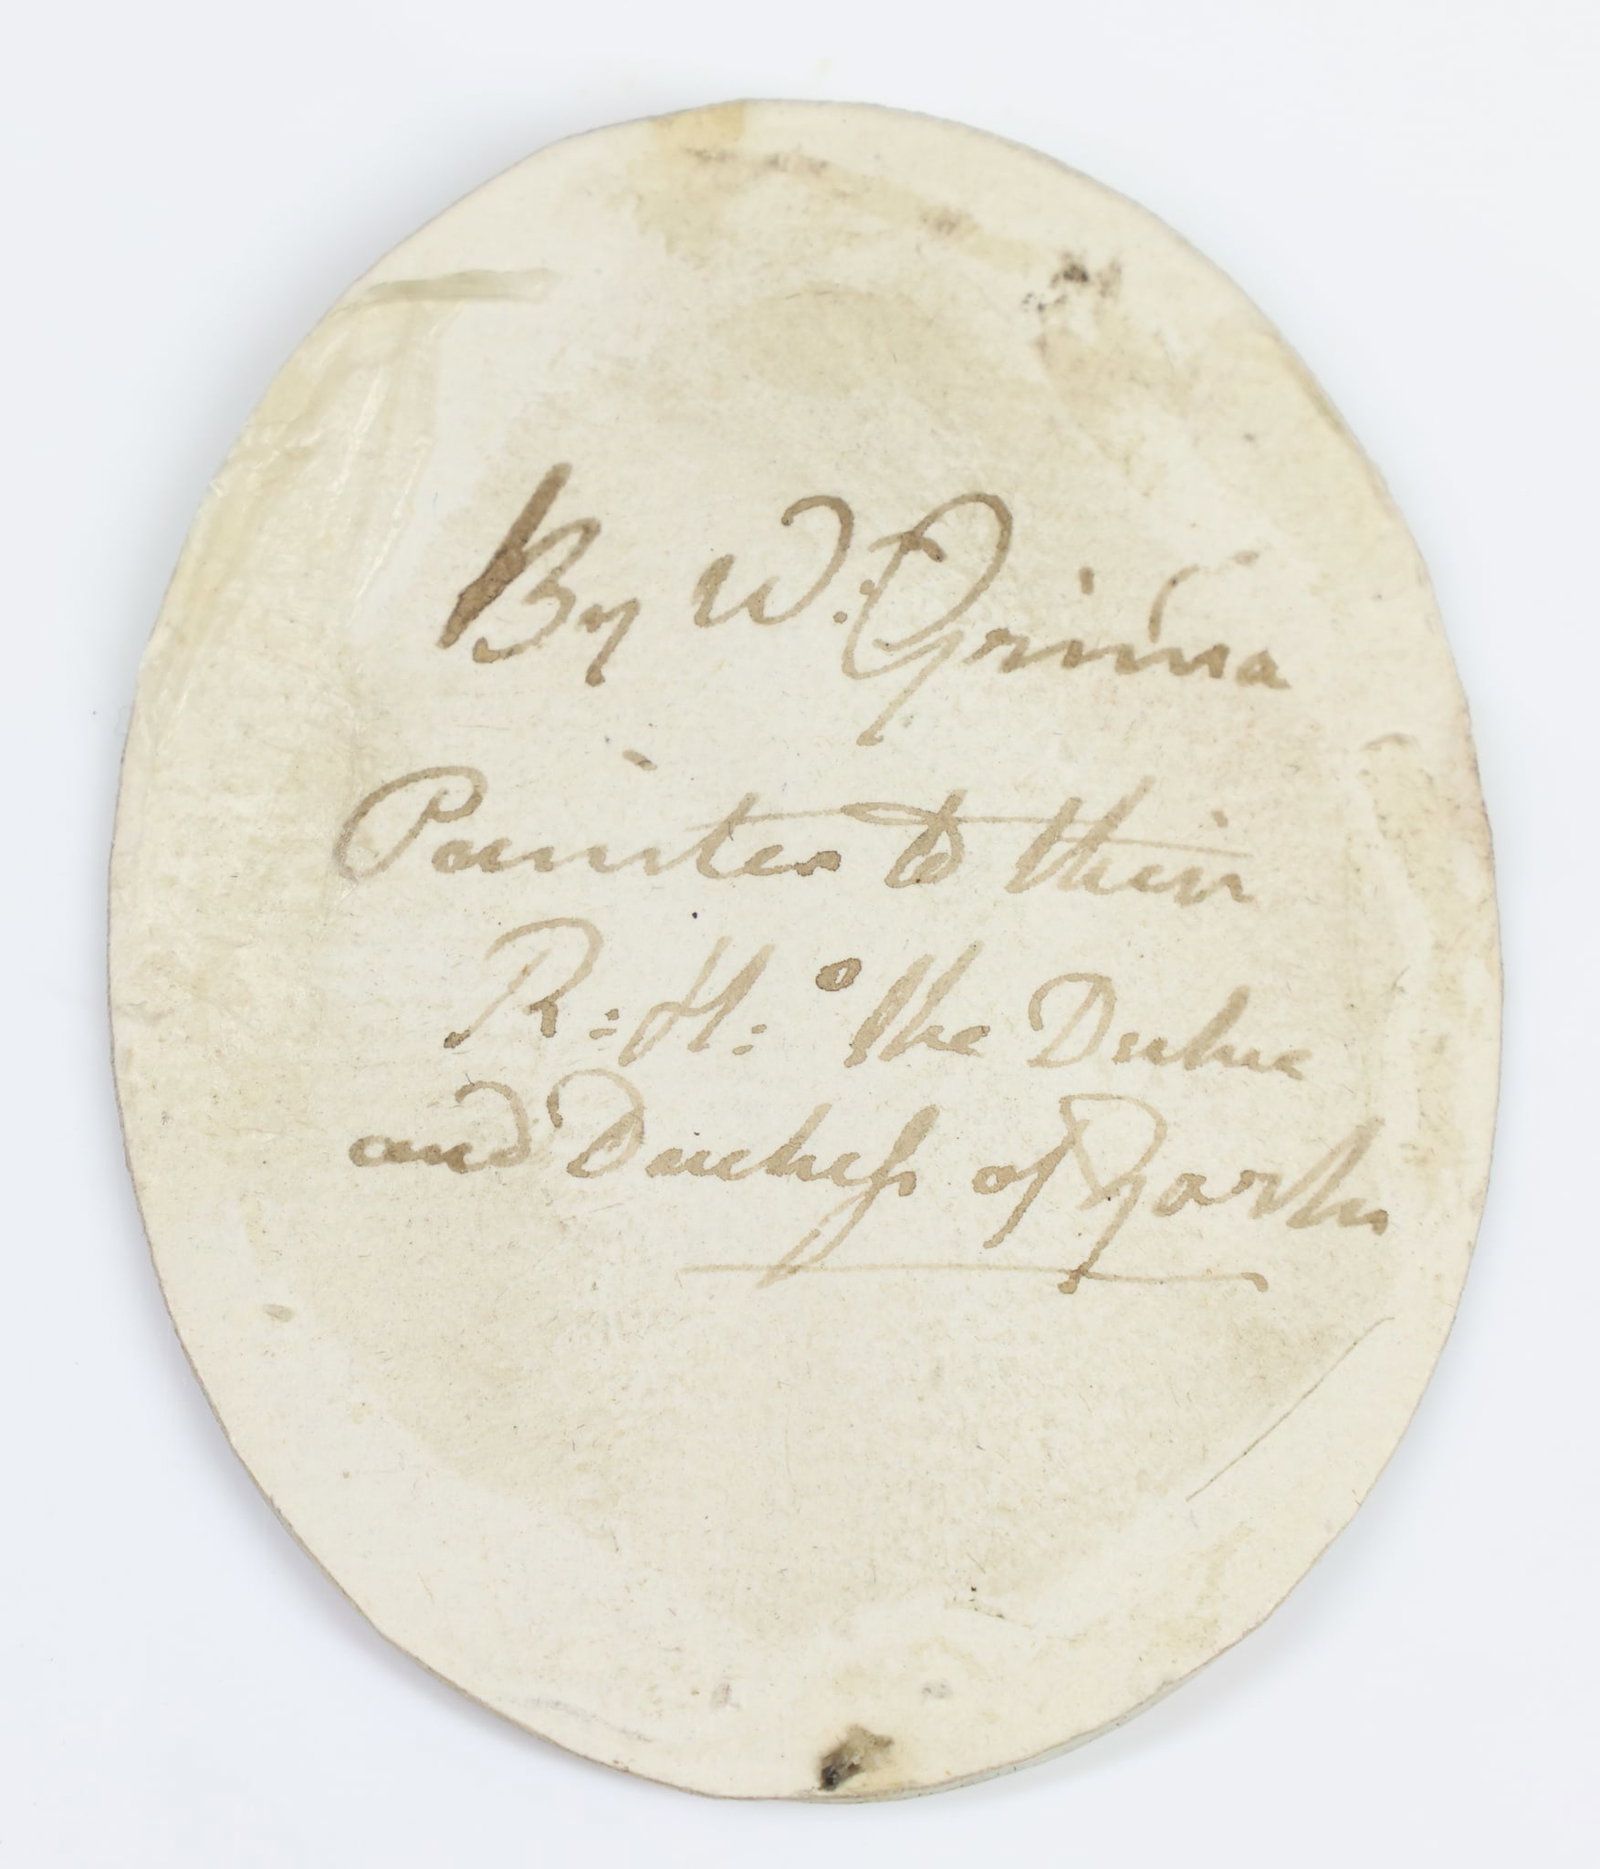 By W:
Painter to their
R:H:° the Duke
and Duchess of York